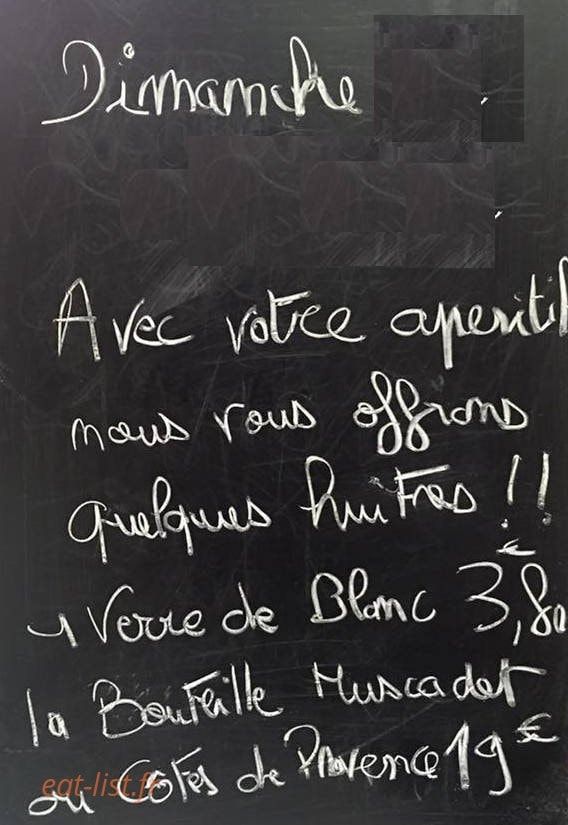 Dimanche
Avec votre aperitif
nous vous offrons
quelques huitres !!
→ Verre de Blanc 3,80€
la Bouteille Muscadet
ou Côtes de Provence 19€
eat-list.fr